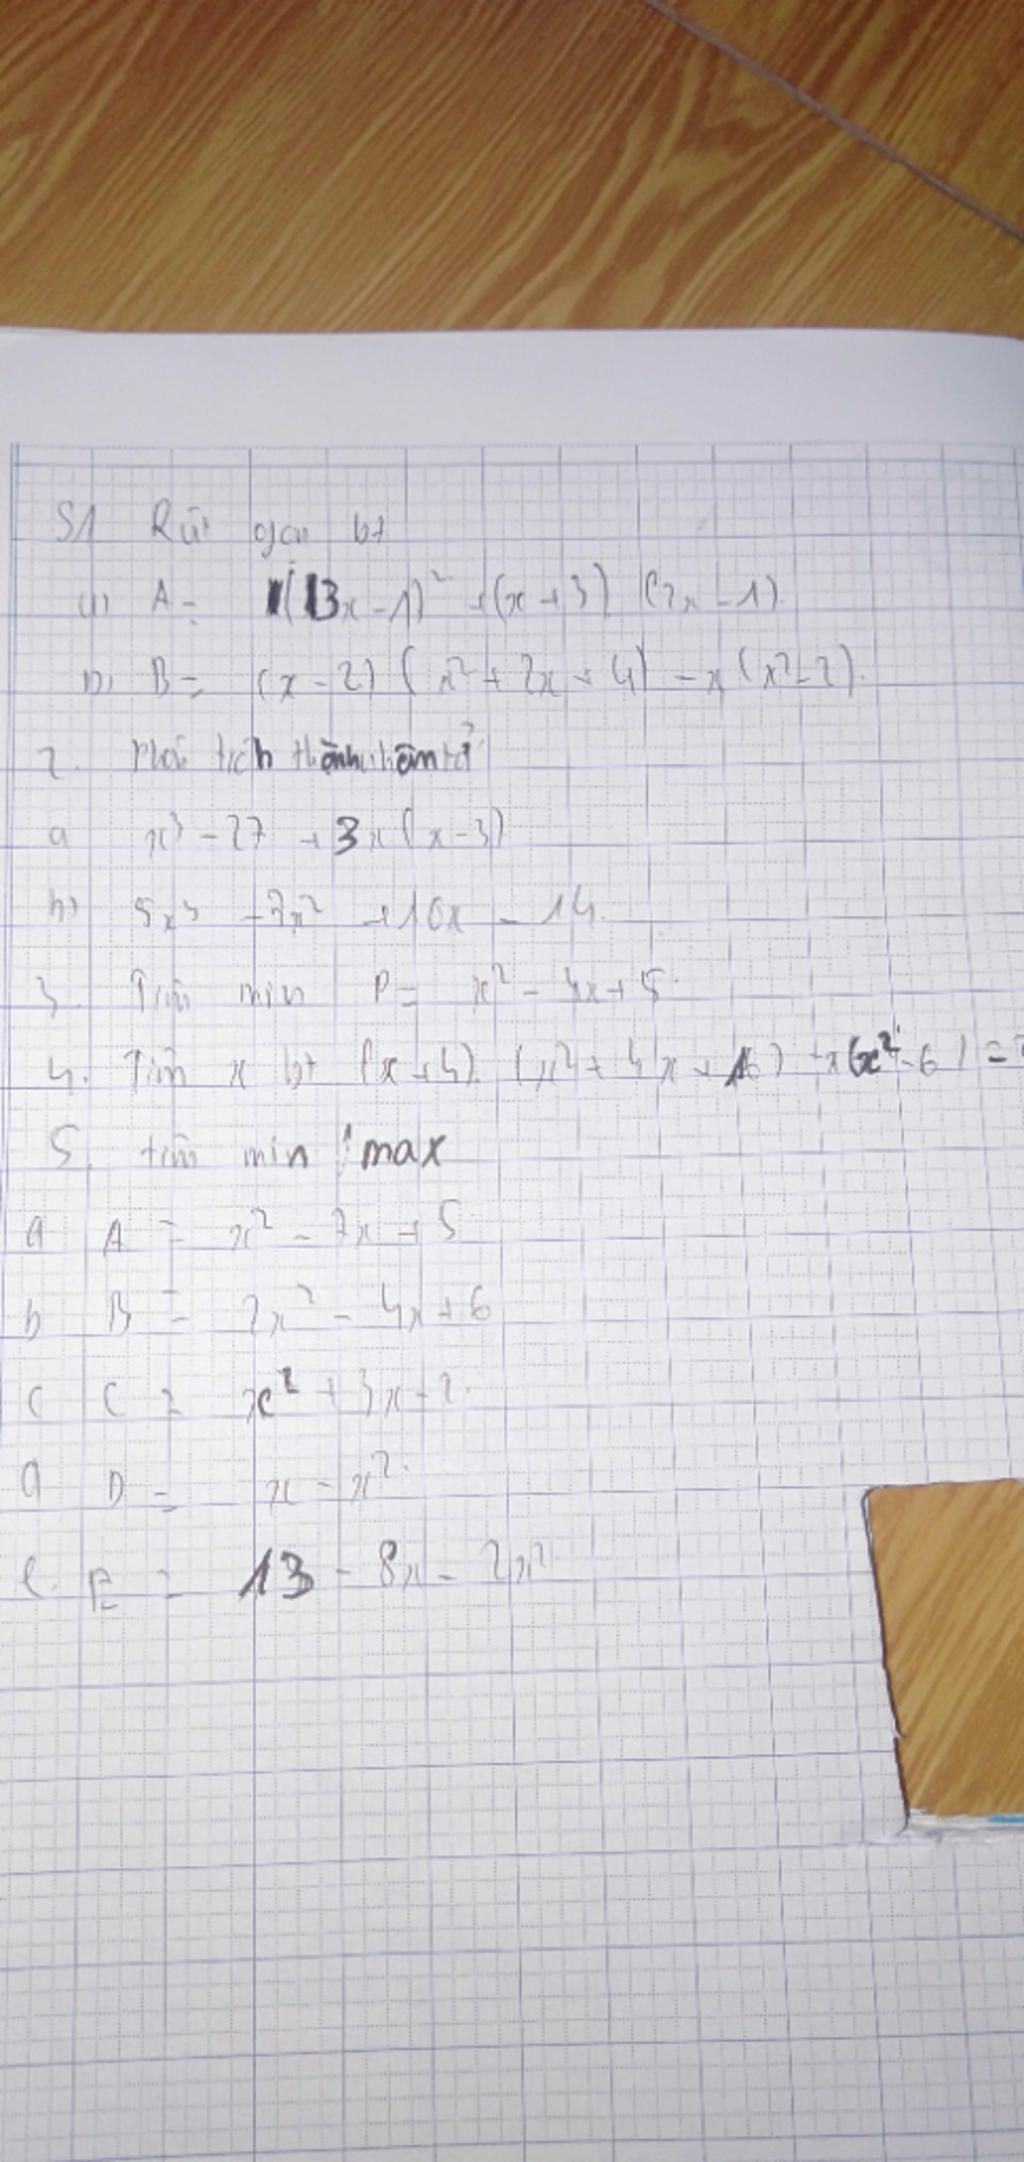 S1 Rút gọn bt
a) A = (3x - 1)² + (x + 3) (2x - 1).
b) B = (x - 2) (x² + 2x + 4) - x (x² - 2).
2. Phân tích thành nhân tử
a x³ - 27 + 3x (x - 3)
b) 5x³ - 7x² + 10x - 14.
3. Tìm min P = x² - 4x + 5.
4. Tìm x bt (x + 4). (x² + 4x + 16) - x (x² - 6) =
5. tìm min max
a A = x² - 7x + 5
b B = 2x² - 4x + 6
c C = x² + 3x - 2.
d D = x - x².
e. E = 13 - 8x - 2x²